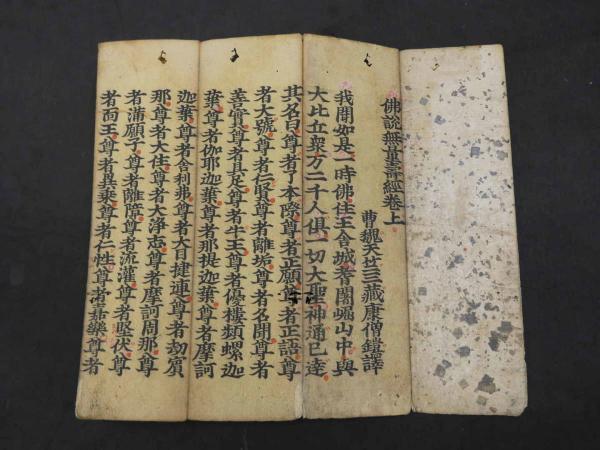 佛說無量壽經卷上
曹魏天竺三藏康僧鎧譯
我聞如是一時佛住王舍城耆闍崛山中與
大比丘衆万二千人俱一切大聖神通已達
其名曰尊者了本際尊者正願尊者正語尊
者大號尊者仁賢尊者離垢尊者名聞尊者
善實尊者具足尊者牛王尊者優樓頻螺迦
葉尊者伽耶迦葉尊者那提迦葉尊者摩訶
迦葉尊者舍利弗尊者大目揵連尊者劫賓
那尊者大住尊者大淨志尊者摩訶周那尊
者滿願子尊者離障尊者流灌尊者堅伏尊
者面王尊者異乘尊者仁性尊者嘉樂尊者